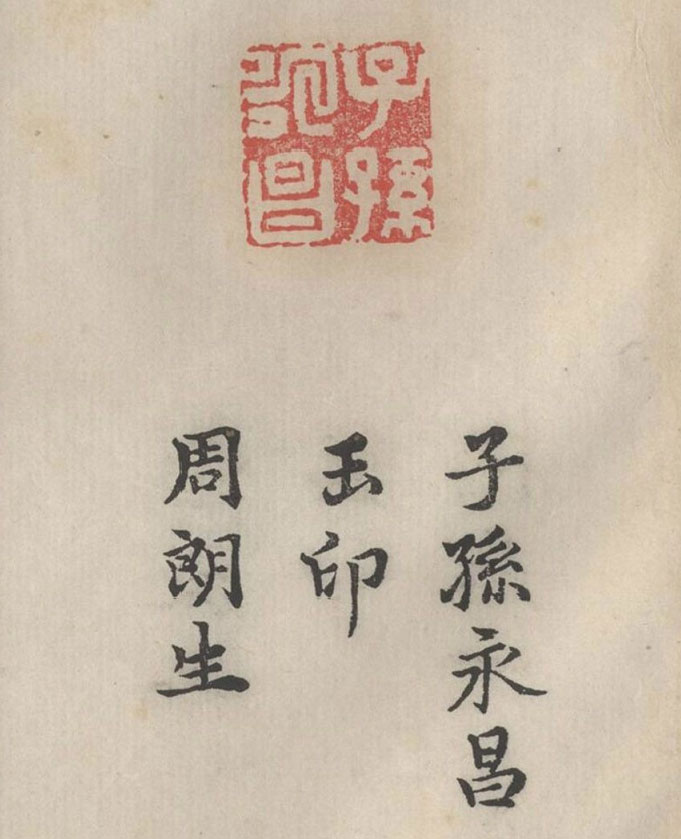 子孫永昌
子孫永昌
玉印
周朗生